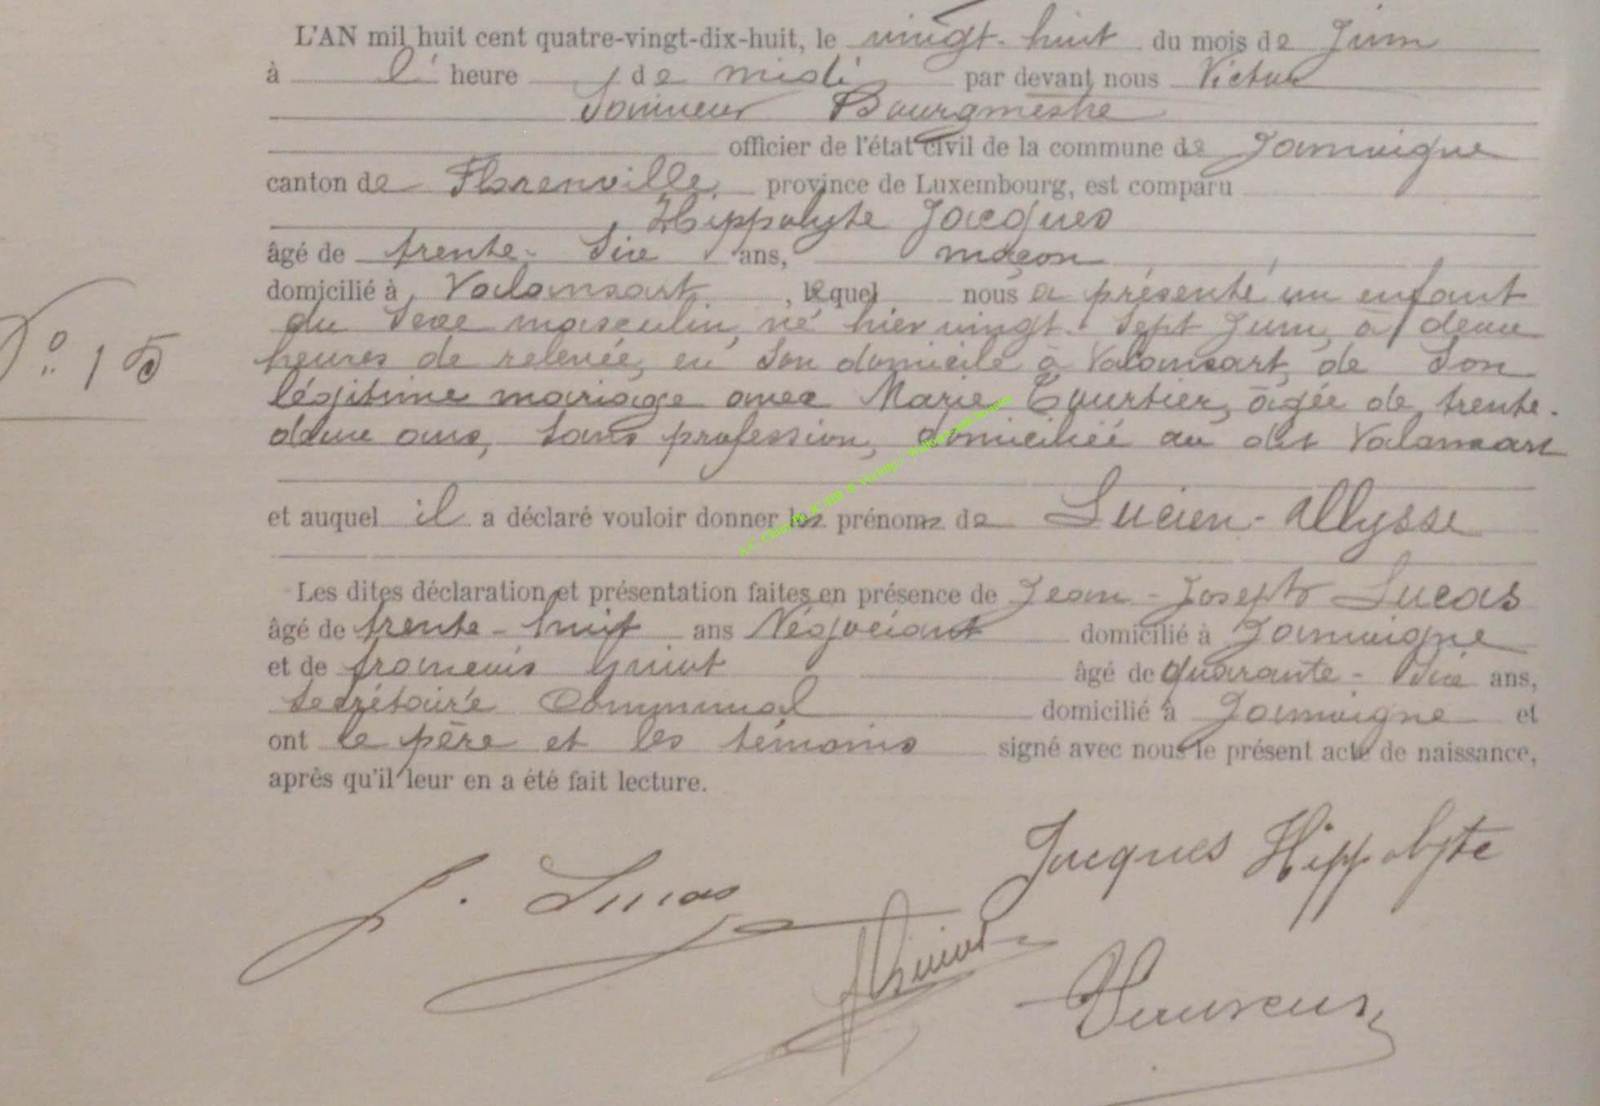 L'AN mil huit cent quatre-vingt-dix-huit, le vingt-huit du mois de Juin
à l' heure de midi par devant nous Victor
Bourgmestre
officier de l'état civil de la commune de Jamoigne
canton de Florenville province de Luxembourg, est comparu
Hippolyte Jacques
âgé de trente-six ans, maçon
domicilié à Valansart, lequel nous a présenté un enfant
du sexe masculin, né hier vingt-sept Juin, à deux
N° 15
heures de relevée, en son domicile à Valansart, de son
légitime mariage avec Marie, âgée de trente-
deux ans, sans profession, domiciliée au dit Valansart
et auquel il a déclaré vouloir donner les prénoms de Lucien-Allysse
Les dites déclaration et présentation faites en présence de Jean-Joseph Lucas
âgé de trente-huit ans Négociant domicilié à Jamoigne
et de francois âgé de quarante-six ans,
Secrétaire Communal domicilié à Jamoigne et
ont le père et les témoins signé avec nous le présent acte de naissance,
après qu'il leur en a été fait lecture.
Jacques Hippolyte
J. Lucas